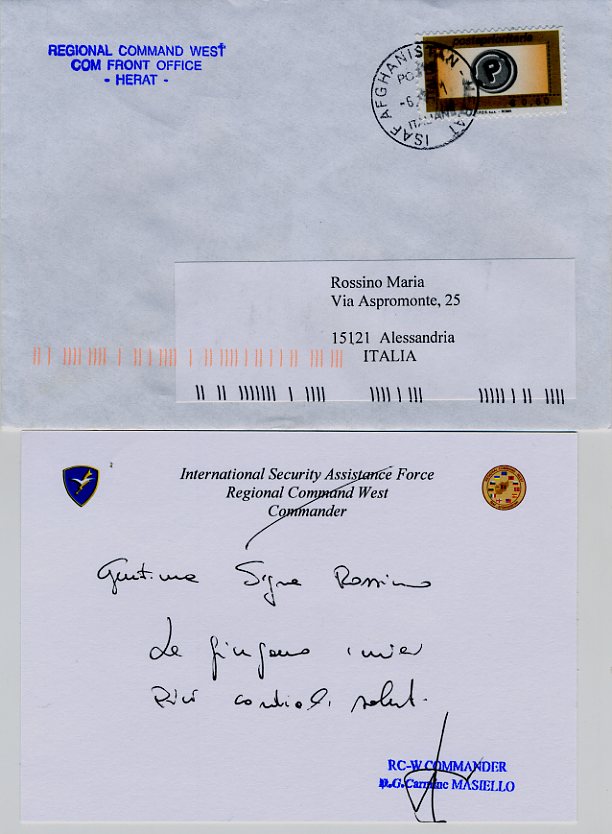 REGIONAL COMMAND WEST
COM FRONT OFFICE
- HERAT -
ISAF AFGHANISTAN
ITALIAN
€ 0,60
Rossino Maria
Via Aspromonte, 25
15121 Alessandria
ITALIA
International Security Assistance Force
Regional Command West
Commander
Gent.ma Sig.ra Rossino
Le giungano i miei
più cordiali saluti.
RC-W COMMANDER
B.G. Carmine MASIELLO